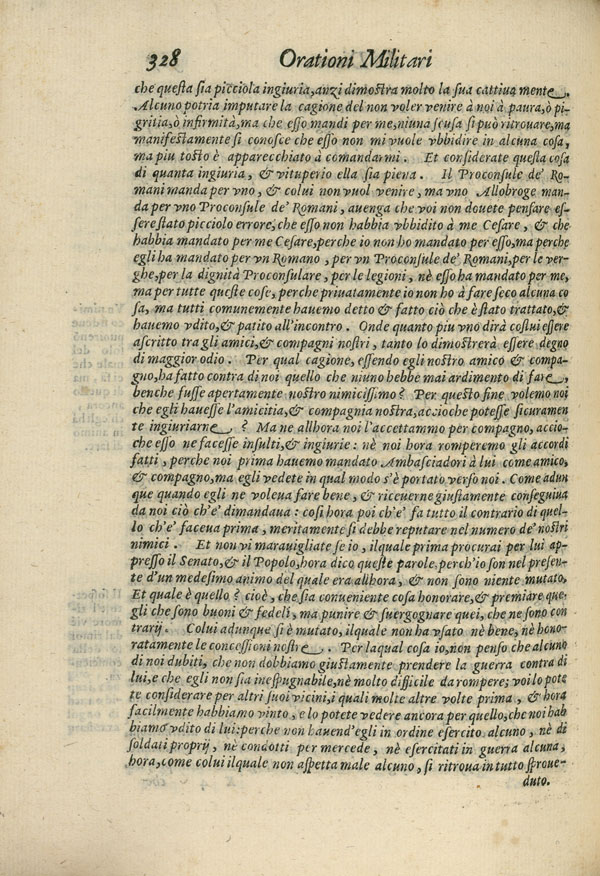 328 Orationi Militari
che questa sia picciola ingiuria, anzi dimostra molto la sua cattiua mente.
Alcuno potria imputare la cagione del non voler venire à noi à paura, ò pi-
gritia, ò infirmità, ma che esso mandi per me, niuna scusa si può ritrouare, ma
manifestamente si conosce che esso non mi vuole vbbidire in alcuna cosa,
ma piu tosto è apparecchiato à comandarmi. Et considerate questa cosa
di quanta ingiuria, & vituperio ella sia piena. Il Proconsule de' Ro-
mani manda per vno, & colui non vuol venire, ma vno Allobroge man-
da per vno Proconsule de' Romani, auenga che voi non douete pensare es-
sere stato picciolo errore, che esso non habbia vbbidito à me Cesare, & che
habbia mandato per me Cesare, perche io non ho mandato per esso, ma perche
egli ha mandato per vn Romano, per vn Proconsule de' Romani, per le ver-
ghe, per la dignità Proconsulare, per le legioni, nè esso ha mandato per me,
ma per tutte queste cose, perche priuatamente io non ho à fare seco alcuna co
sa, ma tutti comunemente hauemo detto & fatto ciò che è stato trattato, &
hauemo vdito, & patito all'incontro. Onde quanto piu vno dirà costui essere
ascritto tra gli amici, & compagni nostri, tanto lo dimostrerà essere degno
di maggior odio. Per qual cagione, essendo egli nostro amico & compa-
gno, ha fatto contra di noi quello che niuno hebbe mai ardimento di fare,
benche fusse apertamente nostro nimicissimo? Per questo fine volemo noi
che egli hauesse l'amicitia, & compagnia nostra, acciochе potesse sicuramen
te ingiuriarne? Ma ne allhora noi l'accettammo per compagno, accio-
che esso ne facesse insulti, & ingiurie: nè noi hora romperemo gli accordi
fatti, perche noi prima hauemo mandato Ambasciadori à lui come amico,
& compagno, ma egli vedete in qual modo s'è portato verso noi. Come adun
que quando egli ne voleua fare bene, & riceuerne giustamente conseguiua
da noi ciò ch'e' dimandaua: così hora poi ch'e' fa tutto il contrario di quel-
lo ch'e' faceua prima, meritamente si debbe reputare nel numero de' nostri
nimici. Et non vi marauigliate se io, ilquale prima procurai per lui ap-
presso il Senato, & il Popolo, hora dico queste parole, perch'io son nel presen-
te d'un medesimo animo del quale era allhora, & non sono niente mutato,
Et quale è quello? cioè, che sia conueniente cosa honorare, & premiare que-
gli che sono buoni & fedeli, ma punire & suergognare quei, che ne sono con
trarij. Colui adunque si è mutato, ilquale non ha vsato nè bene, nè hono-
ratamente le concessioni nostre. Per laqual cosa io, non penso che alcuno
di noi dubiti, che non dobbiamo giustamente prendere la guerra contra di
lui, e che egli non sia inespugnabile, nè molto difficile da rompere; voi lo pote
te considerare per altri suoi vicini, i quali molte altre volte prima, & hora
facilmente habbiamo vinto, e lo potete vedere ancora per quello, che noi hab
biamo vdito di lui: perche non hauend'egli in ordine esercito alcuno, nè di
soldati proprij, nè condotti per mercede, nè esercitati in guerra alcuna,
hora, come colui ilquale non aspetta male alcuno, si ritroua in tutto sproue-
duto.